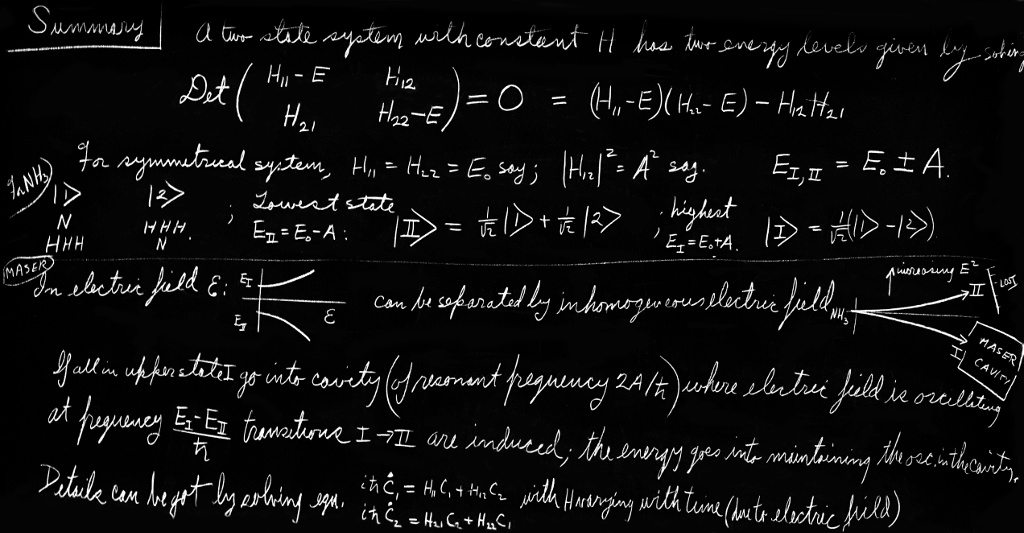 Summary
A two state system with constant H has two energy levels given by solving
Det ( H₁₁ - E H₁₂ H₂₁ H₂₂ - E ) = 0 = (H₁₁ - E)(H₂₂ - E) - H₁₂H₂₁
For symmetrical system, H₁₁ = H₂₂ = E₀ say; |H₁₂|² = A² say. E_I,II = E₀ ± A.
In NH₃ |1> |2> ; Lowest state |II> = 1/√2 |1> + 1/√2 |2> ; highest |I> = 1/√2 (|1> - |2>)
N HHH. E_II = E₀ - A: E_I = E₀ + A.
HHH N
MASER
In electric field ℰ: E_I E_II ℰ can be separated by inhomogeneous electric field NH₃ increasing E² II LOST I MASER CAVITY
If all in upper state I go into cavity (of resonant frequency 2A/ħ) where electric field is oscillating
at frequency (E_I - E_II)/ħ transitions I → II are induced; the energy goes into maintaining the osc. in the cavity.
Details can be got by solving eqn. iħĊ₁ = H₁₁C₁ + H₁₂C₂ with H varying with time (due to electric field)
iħĊ₂ = H₂₁C₂ + H₂₂C₁